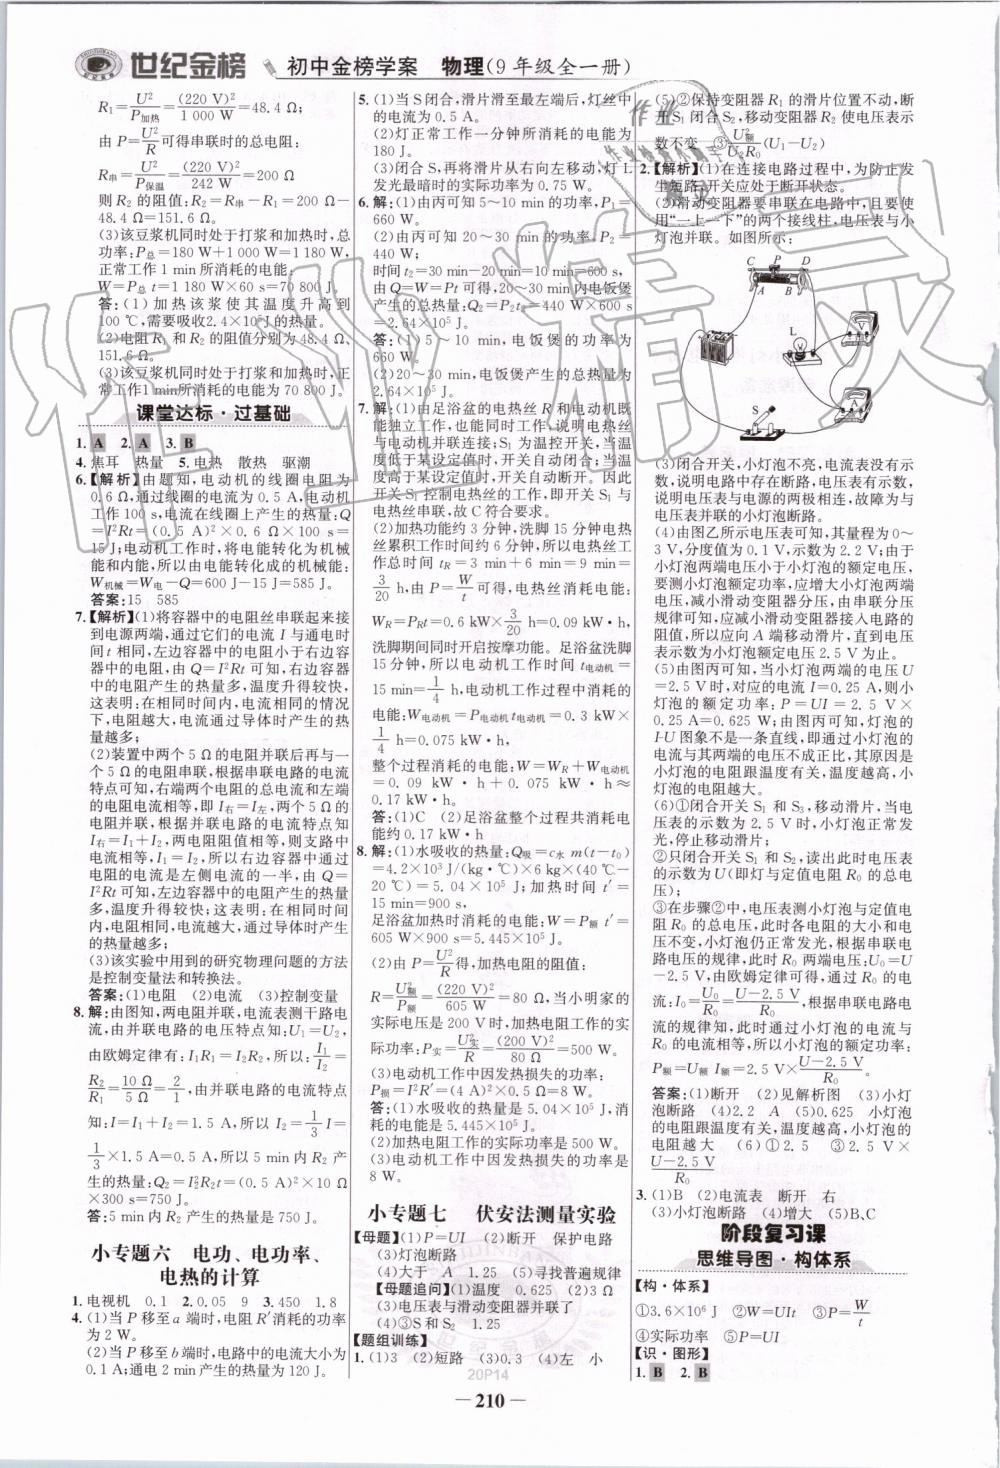 世纪金榜 初中金榜学案 物理(9年级全一册)
R₁=U²/P加热=(220 V)²/1 000 W=48.4 Ω;
由P=U²/R可得串联时的总电阻:
R串=U²/P保温=(220 V)²/242 W=200 Ω
则R₂的阻值:R₂=R串-R₁=200 Ω-
48.4 Ω=151.6 Ω。
(3)该豆浆机同时处于打浆和加热时,总
功率:P总=180 W+1 000 W=1 180 W,
正常工作1 min所消耗的电能:
W=P总t=1 180 W×60 s=70 800 J。
答:(1)加热该浆使其温度升高到
100 ℃,需要吸收2.4×10⁵J的热量。
(2)电阻R₁和R₂的阻值分别为48.4 Ω、
151.6 Ω。
(3)该豆浆机同时处于打浆和加热时,正
常工作1 min所消耗的电能为70 800 J。
课堂达标·过基础
1. A 2. A 3. B
4.焦耳 热量 5.电热 散热 驱潮
6.【解析】由题知,电动机的线圈电阻为
0.6 Ω,通过线圈的电流为0.5 A,电动机
工作100 s,电流在线圈上产生的热量:Q
=I²Rt=(0.5 A)²×0.6 Ω×100 s=
15 J;电动机工作时,将电能转化为机械
能和内能,所以由电能转化成的机械能:
W机械=W电-Q=600 J-15 J=585 J。
答案:15 585
7.【解析】(1)将容器中的电阻丝串联起来接
到电源两端,通过它们的电流I与通电时
间t相同,左边容器中的电阻小于右边容器
中的电阻,由Q=I²Rt可知,右边容器中
的电阻产生的热量多,温度升得较快,
这表明:在相同时间内,电流相同的情况
下,电阻越大,电流通过导体时产生的热
量越多;
(2)装置中两个5 Ω的电阻并联后再与一
个5 Ω的电阻串联,根据串联电路的电流
特点可知,右端两个电阻的总电流和左端
的电阻电流相等,即I右=I左,两个5 Ω的
电阻并联,根据并联电路的电流特点知
I右=I₁+I₂,两电阻阻值相等,则支路中
电流相等,I₁=I₂,所以右边容器中通过
电阻的电流是左侧电流的一半,由Q=
I²Rt可知,左边容器中的电阻产生的热量
多,温度升得较快;这表明:在相同时间
内,电阻相同,电流越大,通过导体时产生
的热量越多;
(3)该实验中用到的研究物理问题的方法
是控制变量法和转换法。
答案:(1)电阻 (2)电流 (3)控制变量
8.解:由图知,两电阻并联,电流表测干路电
流,由并联电路的电压特点知:U₁=U₂,
由欧姆定律有:I₁R₁=I₂R₂,所以:I₁/I₂=
R₂/R₁=10 Ω/5 Ω=2/1,由并联电路的电流特点
知:I=I₁+I₂=1.5 A,所以I₂=1/3 I=
1/3×1.5 A=0.5 A,所以5 min内R₂产
生的热量:Q=I₂²R₂t=(0.5 A)²×10 Ω
×300 s=750 J。
答:5 min内R₂产生的热量是750 J。
小专题六 电功、电功率、
电热的计算
1.电视机 0.1 2.0.05 9 3.450 1.8
4.(1)当P移至a端时,电阻R′消耗的功率
为2 W。
(2)当P移至b端时,电路中的电流大小为
0.1 A;通电2 min产生的热量为120 J。
5.(1)当S闭合,滑片滑至最左端后,灯丝中
的电流为0.5 A。
(2)灯正常工作一分钟所消耗的电能为
180 J。
(3)闭合S,再将滑片从右向左移动,灯L
发光最暗时的实际功率为0.75 W。
6.解:(1)由丙可知5~10 min的功率,P₁=
660 W。
(2)由丙可知20~30 min的功率,P₂=
440 W;
时间t₂=30 min-20 min=10 min=600 s,
由Q=W=Pt可得,20~30 min内电饭煲
产生的总热量:Q₂=P₂t₂=440 W×600 s
=2.64×10⁵ J。
答:(1)5~10 min,电饭煲的功率为
660 W。
(2)20~30 min,电饭煲产生的总热量为
2.64×10⁵ J。
7.解:(1)由足浴盆的电热丝R和电动机既
能独立工作,也能同时工作,说明电热丝
与电动机并联连接;S₁为温控开关,当温
度低于某设定值时,开关自动闭合,当温
度高于某设定值时,开关自动断开。因此
开关S₁控制电热丝的工作,即开关S₁与
电热丝串联,故C符合要求。
(2)加热功能约3分钟,洗脚15分钟电热
丝累积工作时间约6分钟,所以电热丝工
作总时间tR=3 min+6 min=9 min=
3/20 h,由P=W/t可得,电热丝消耗电能:
WR=PRtR=0.6 kW×3/20 h=0.09 kW·h,
洗脚期间同时开启按摩功能。足浴盆洗脚
15分钟,所以电动机工作时间t电动机=
15 min=1/4 h,电动机工作过程中消耗的
电能:W电动机=P电动机t电动机=0.3 kW×
1/4 h=0.075 kW·h,
整个过程消耗的电能:W=WR+W电动机
=0.09 kW·h+0.075 kW·h≈
0.17 kW·h。
答:(1)C (2)足浴盆整个过程共消耗电
能约0.17 kW·h
8.解:(1)水吸收的热量:Q吸=c水m(t-t₀)
=4.2×10³ J/(kg·℃)×6 kg×(40 ℃-
20 ℃)=5.04×10⁵ J;加热时间t′=
15 min=900 s,
足浴盆加热时消耗的电能:W=P额t′=
605 W×900 s=5.445×10⁵ J。
(2)由P=U²/R得,加热电阻的阻值:
R=U额²/P额=(220 V)²/605 W=80 Ω,当小明家的
实际电压是200 V时,加热电阻工作的实
际功率:P实=U实²/R=(200 V)²/80 Ω=500 W。
(3)电动机工作中因发热损失的功率:
P损=I²R′=(4 A)²×0.5 Ω=8 W。
答:(1)水吸收的热量是5.04×10⁵ J,消
耗的电能是5.445×10⁵ J。
(2)加热电阻工作的实际功率是500 W。
(3)电动机工作中因发热损失的功率是
8 W。
小专题七 伏安法测量实验
【母题】(1)P=UI (2)断开 保护电路
(3)灯泡断路
(4)大于 A 1.25 (5)寻找普遍规律
【母题追问】(1)温度 0.625 (2)3 Ω
(3)电压表与滑动变阻器并联了
(4)③S和S₂ 1.25
【题组训练】
1.(1)3 (2)短路 (3)0.3 (4)左 小
(5)②保持变阻器R₁的滑片位置不动,断
开S₁闭合S₂,移动变阻器R₂使电压表示
数不变 ③U额/R₀(U₁-U₂)
2.【解析】(1)在连接电路过程中,为防止发
生短路,开关应处于断开状态。
(2)滑动变阻器要串联在电路中,且要使
用“一上一下”的两个接线柱,电压表与小
灯泡并联。如图所示:
C P D
A B
L
V
A
S
(3)闭合开关,小灯泡不亮,电流表没有示
数,说明电路中存在断路,电压表有示数,
说明电压表与电源的两极相连,故障为与
电压表并联的小灯泡断路。
(4)由图乙所示电压表可知,其量程为0~
3 V,分度值为0.1 V,示数为2.2 V;由于
小灯泡两端电压小于小灯泡的额定电压,
要测小灯泡额定功率,应增大小灯泡两端
电压,减小滑动变阻器分压,由串联分压
规律可知,应减小滑动变阻器接入电路的
阻值,所以应向A端移动滑片,直到电压
表示数为小灯泡额定电压2.5 V为止。
(5)由图丙可知,当小灯泡两端的电压U
=2.5 V时,对应的电流I=0.25 A,则小
灯泡的额定功率:P=UI=2.5 V×
0.25 A=0.625 W;由图丙可知,灯泡的
I-U图象不是一条直线,即通过小灯泡的
电流与其两端的电压不成正比,其原因是
小灯泡的电阻跟温度有关,温度越高,小
灯泡的电阻越大。
(6)①闭合开关S₁和S₃,移动滑片,当电
压表的示数为2.5 V时,小灯泡正常发
光,停止移动滑片;
②只闭合开关S₁和S₂,读出此时电压表
的示数为U(即灯与定值电阻R₀的总电
压);
③在步骤②中,电压表测小灯泡与定值电
阻R₀的总电压,此时各电阻的大小和电
压不变,小灯泡仍正常发光,根据串联电
路电压规律,此时R₀两端电压:U₀=U
-2.5 V,由欧姆定律可得,通过R₀的电
流:I₀=U₀/R₀=U-2.5 V/R₀,根据串联电路电
流的规律知,此时通过小灯泡的电流与
R₀的电流相等,所以小灯泡的额定功率:
P额=U额 I额=2.5 V×U-2.5 V/R₀。
答案:(1)断开 (2)见解析图 (3)小灯
泡断路 (4)2.2 A (5)0.625 小灯泡
的电阻跟温度有关,温度越高,小灯泡的
电阻越大 (6)①2.5 ③2.5 V×
U-2.5 V/R₀
3.(1)B (2)电流表 断开 右
(3)小灯泡断路 (4)增大 (5)B、C
阶段复习课
思维导图·构体系
【构·体系】
①3.6×10⁶ J ②W=UIt ③P=W/t
④实际功率 ⑤P=UI
【识·图形】
1. B 2. B
20P14
— 210 —